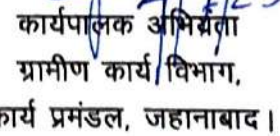 कार्यपालक अभियंता
ग्रामीण कार्य विभाग,
कार्य प्रमंडल, जहानाबाद।